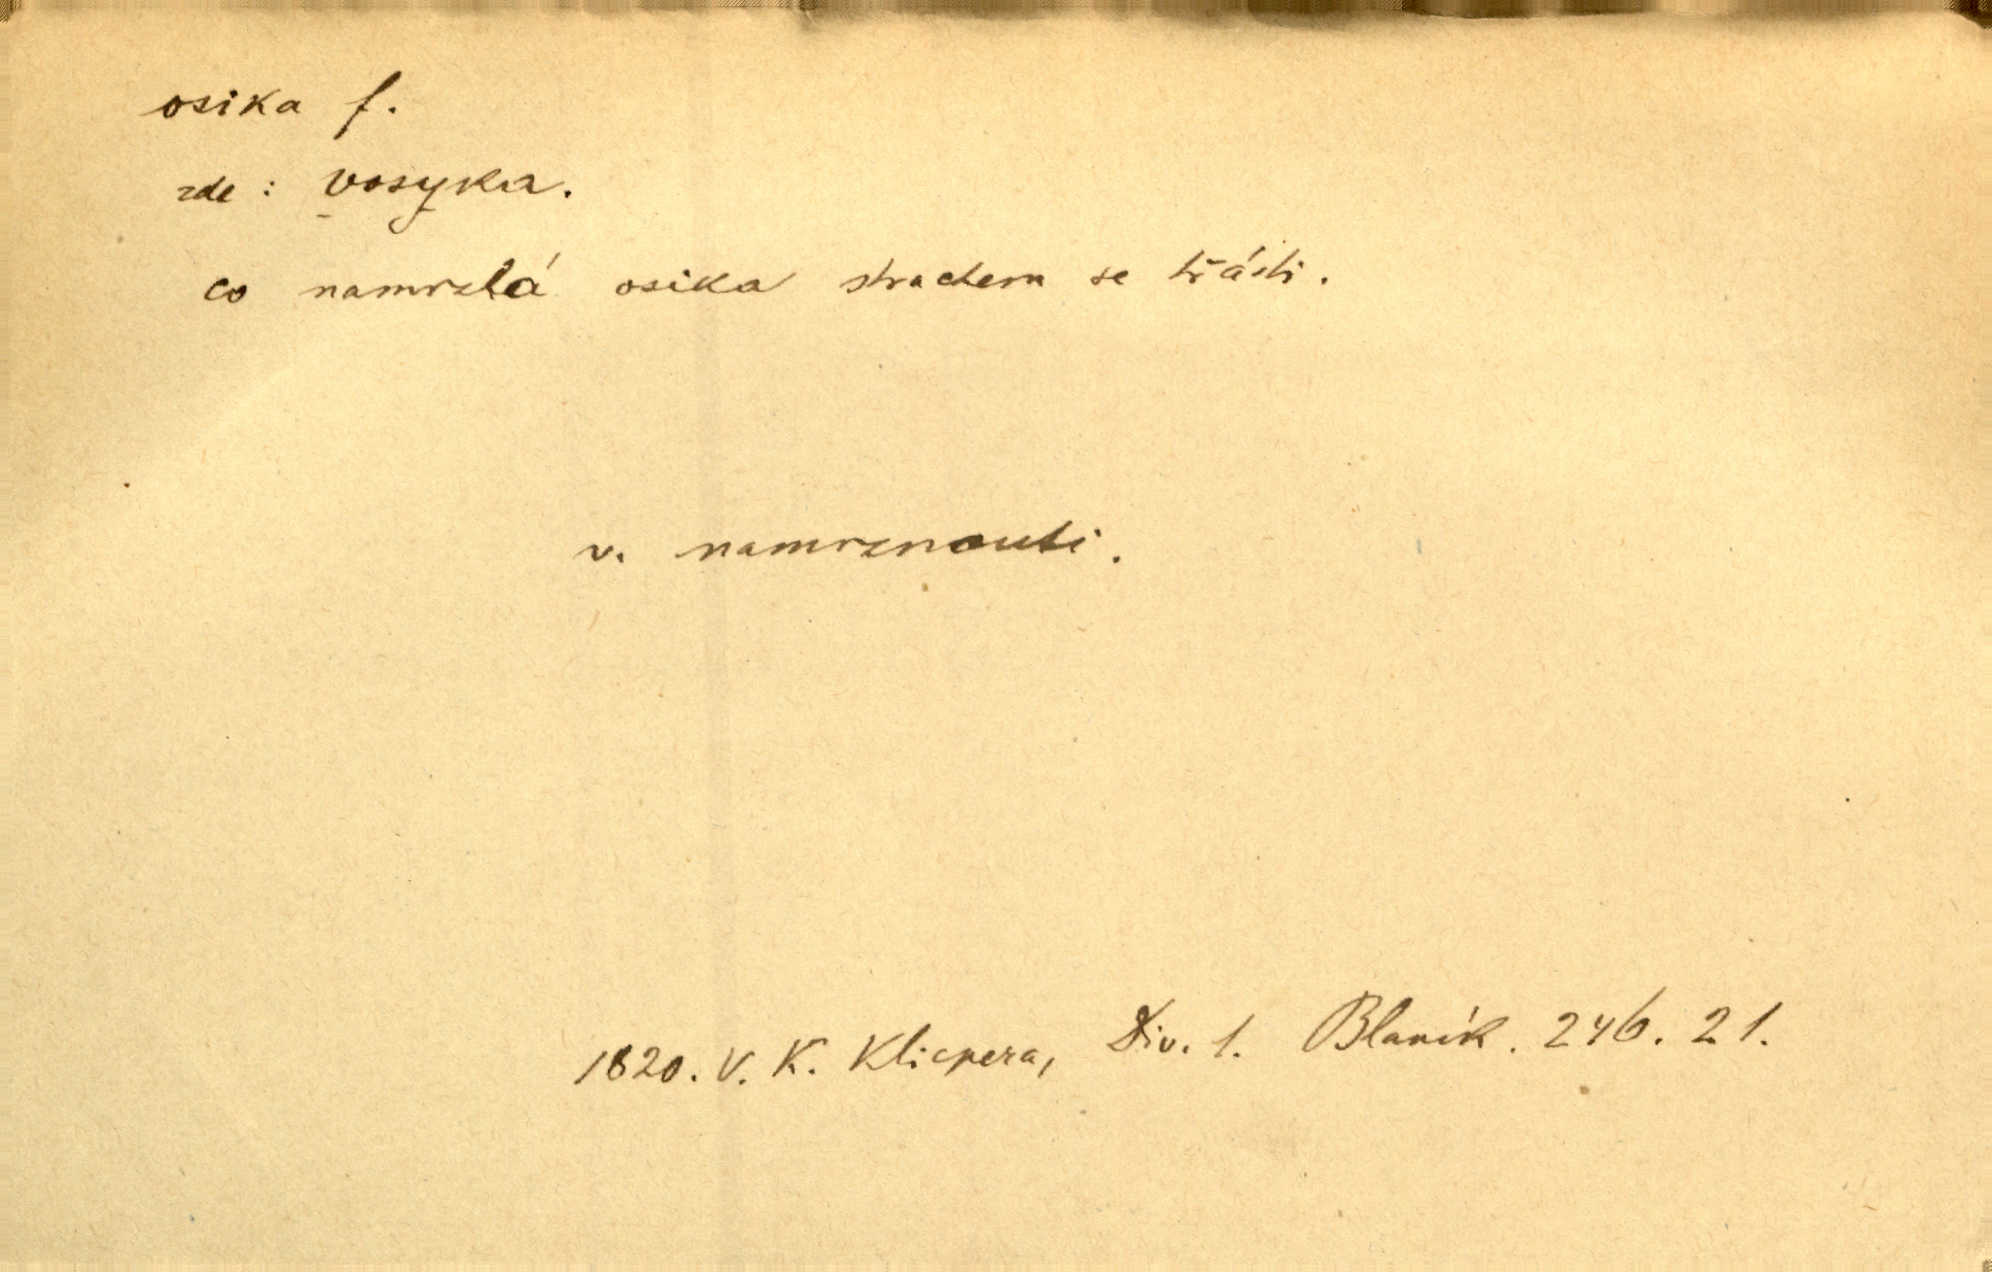 osika f.
zde: vosyka.
co namrzlá osika strachem se třásti.
v. namrznouti.
1820. V. K. Klicpera, Div. 1. Blaník. 246. 21.